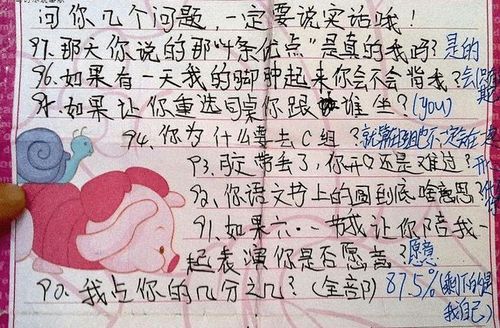 问你几个问题,一定要说实话哦!
97.那天你说的那"4条优点"是真的我吗?是的
96.如果有一天我的脚肿起来你会不会背我?会
95.如果让你重选同桌你跟谁坐?(you)
94.你为什么要去C组?
93.胶带丢了,你开心还是难过?
92.你语文书上的图到底啥意思?
91.如果六·一节或让你陪我一
起表演你是否愿意?愿意
90.我占你的几分之几?(全部) 87.5%(剩下的是
我自己)